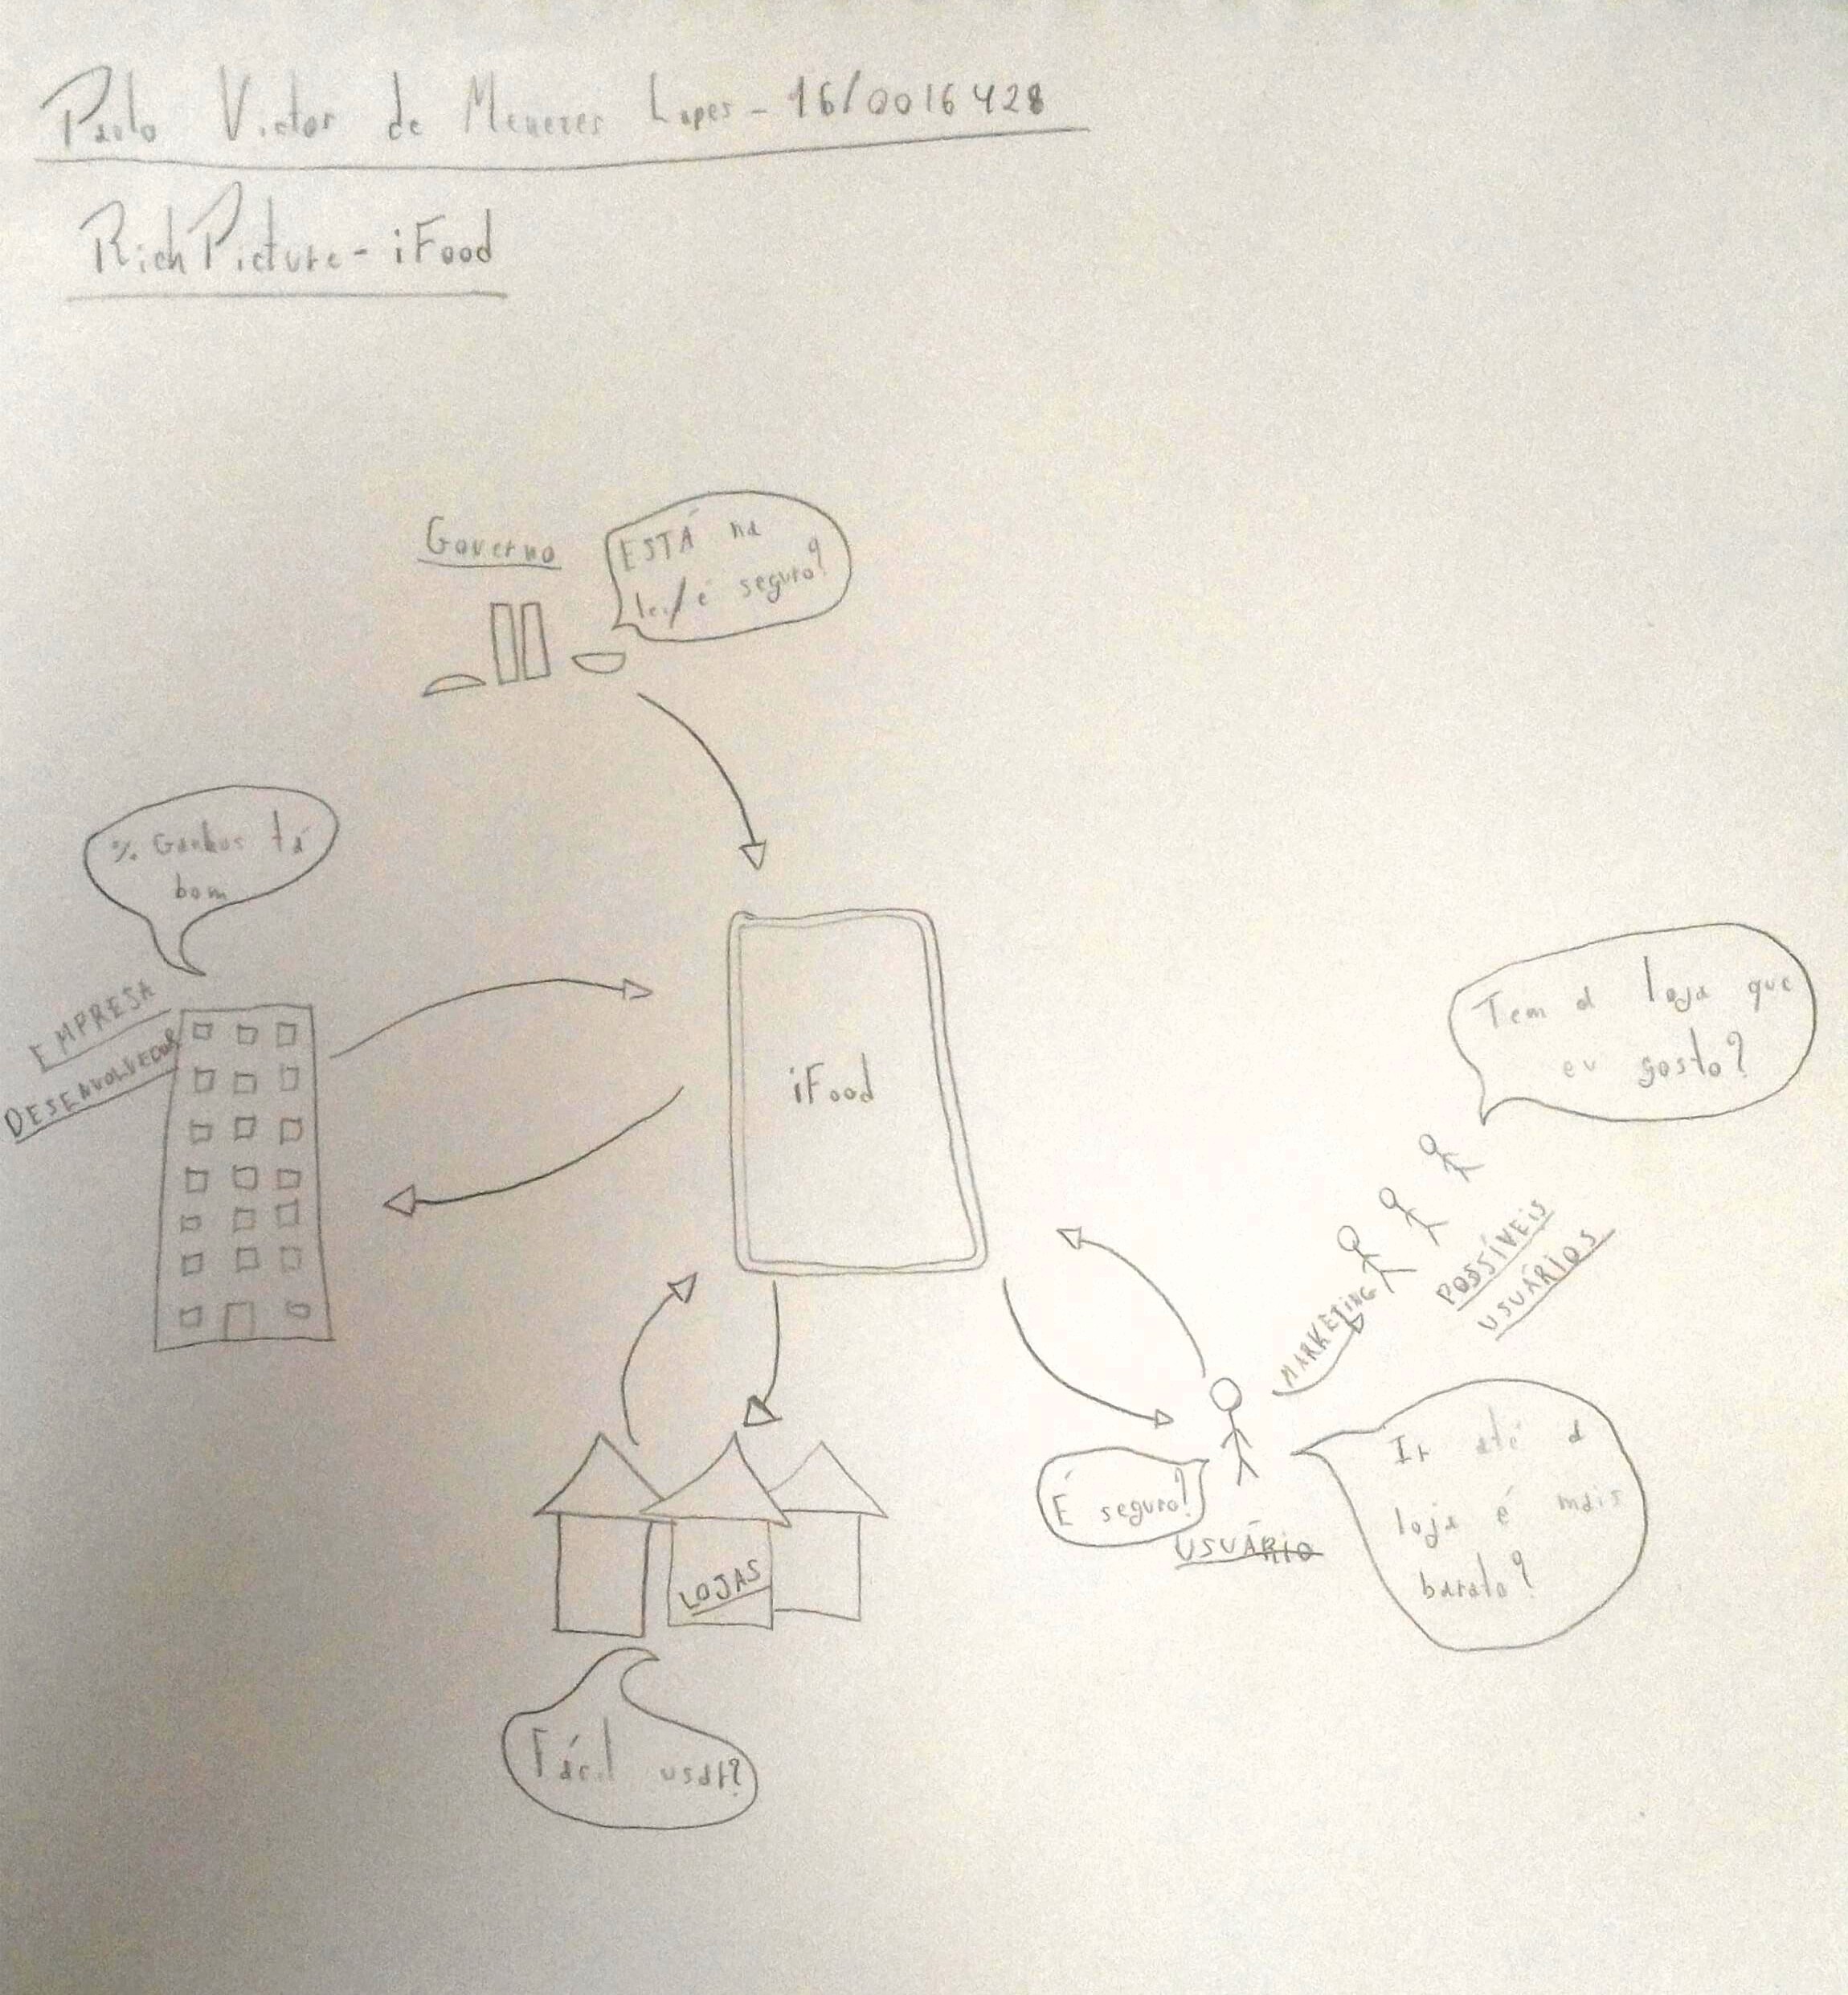 Paulo Victor de Menezes Lopes - 16/0016428
Rich Picture - iFood
Governo
ESTÁ na
lei/é seguro?
% Ganhos tá
bom
EMPRESA
DESENVOLVEDOR
iFood
Tem a loja que
eu gosto?
POSSÍVEIS
USUÁRIOS
MARKETING
Ir até a
loja é mais
barato?
É seguro?
USUÁRIO
LOJAS
Fácil usar?